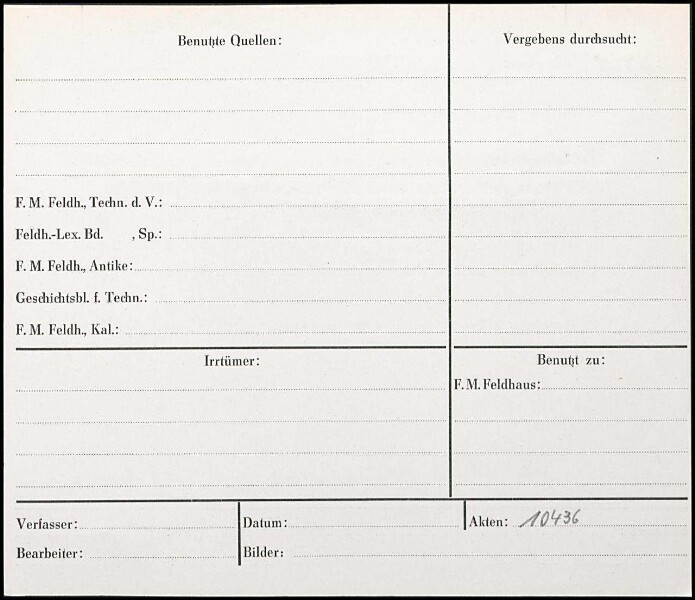 Benutzte Quellen:
F. M. Feldh., Techn. d. V.:
Feldh.-Lex. Bd. , Sp.:
F. M. Feldh., Antike:
Geschichtsbl. f. Techn.:
F. M. Feldh., Kal.:
Vergebens durchsucht:
Irrtümer:
Benutzt zu:
F. M. Feldhaus:
Verfasser:
Datum:
Akten: 10436
Bearbeiter:
Bilder: